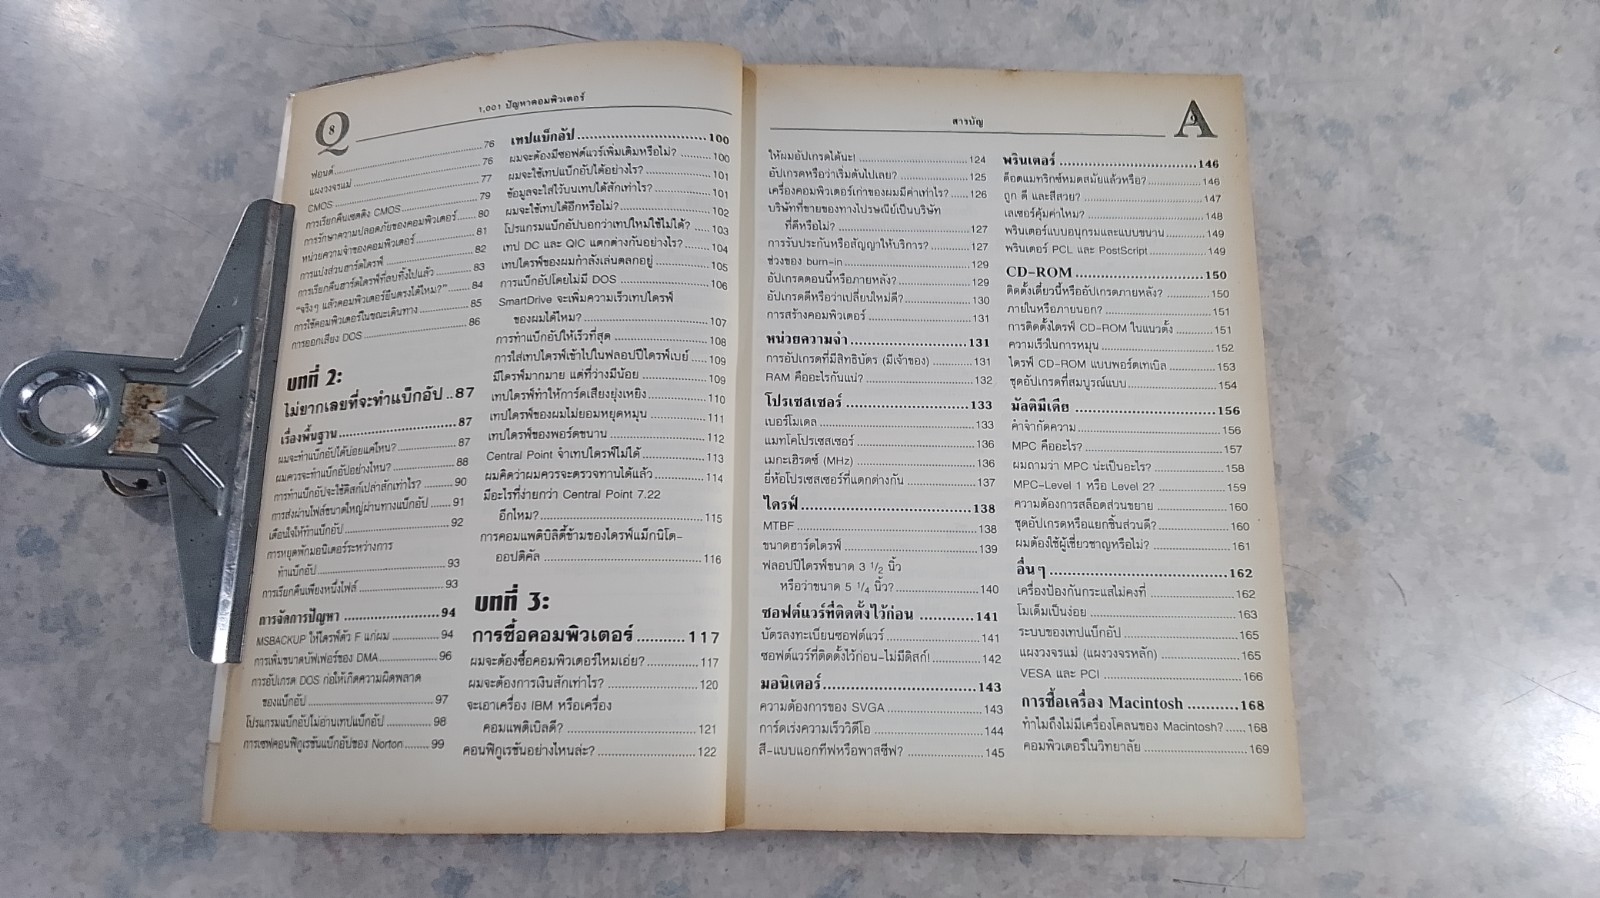 8
1,001 ปัญหาคอมพิวเตอร์
ฟอนต์ 76
แผงวงจรแม่ 76
CMOS 77
การเรียกคืนเซตติง CMOS 79
การรักษาความปลอดภัยของคอมพิวเตอร์ 80
หน่วยความจำของคอมพิวเตอร์ 81
การแบ่งส่วนฮาร์ดไดรฟ์ 82
การเรียกคืนฮาร์ดไดรฟ์ที่ลบทิ้งไปแล้ว 83
"จริงๆ แล้วคอมพิวเตอร์ยืนตรงได้ไหม?" 84
การใช้คอมพิวเตอร์ในขณะเดินทาง 85
การออกเสียง DOS 86
บทที่ 2:
ไม่ยากเลยที่จะทำแบ็กอัป ..87
เรื่องพื้นฐาน 87
ผมจะทำแบ็กอัปได้บ่อยแค่ไหน? 87
ผมควรจะทำแบ็กอัปอย่างไหน? 88
การทำแบ็กอัปจะใช้ดิสก์เปล่าสักเท่าไร? 90
การส่งผ่านไฟล์ขนาดใหญ่ผ่านทางแบ็กอัป 91
เตือนใจให้ทำแบ็กอัป 92
การหยุดพักมอนิเตอร์ระหว่างการ
ทำแบ็กอัป 93
การเรียกคืนเพียงหนึ่งไฟล์ 93
การจัดการปัญหา 94
MSBACKUP ให้ไดรฟ์ตัว F แก่ผม 94
การเพิ่มขนาดบัฟเฟอร์ของ DMA 96
การอัปเกรด DOS ก่อให้เกิดความผิดพลาด
ของแบ็กอัป 97
โปรแกรมแบ็กอัปไม่อ่านเทปแบ็กอัป 98
การเซฟคอนฟิกูเรชันแบ็กอัปของ Norton 99
เทปแบ็กอัป 100
ผมจะต้องมีซอฟต์แวร์เพิ่มเติมหรือไม่? 100
ผมจะใช้เทปแบ็กอัปได้อย่างไร? 101
ข้อมูลจะใส่ไว้บนเทปได้สักเท่าไร? 101
ผมจะใช้เทปได้อีกหรือไม่? 102
โปรแกรมแบ็กอัปบอกว่าเทปใหม่ใช้ไม่ได้? 103
เทป DC และ QIC แตกต่างกันอย่างไร? 104
เทปไดรฟ์ของผมกำลังเล่นตลกอยู่ 105
การแบ็กอัปโดยไม่มี DOS 106
SmartDrive จะเพิ่มความเร็วเทปไดรฟ์
ของผมได้ไหม? 107
การทำแบ็กอัปให้เร็วที่สุด 108
การใส่เทปไดรฟ์เข้าไปในฟลอปปีไดรฟ์เบย์ 109
มีไดรฟ์มากมาย แต่ที่ว่างมีน้อย 109
เทปไดรฟ์ทำให้การ์ดเสียงยุ่งเหยิง 110
เทปไดรฟ์ของผมไม่ยอมหยุดหมุน 111
เทปไดรฟ์ของพอร์ตขนาน 112
Central Point จำเทปไดรฟ์ไม่ได้ 113
ผมคิดว่าผมควรจะตรวจทานได้แล้ว 114
มีอะไรที่ง่ายกว่า Central Point 7.22
อีกไหม? 115
การคอมแพติบิลิตี้ข้ามของไดรฟ์แม็กนิโต-
ออปติคัล 116
บทที่ 3:
การซื้อคอมพิวเตอร์ 117
ผมจะต้องซื้อคอมพิวเตอร์ไหมเอ่ย? 117
ผมจะต้องการเงินสักเท่าไร? 120
จะเอาเครื่อง IBM หรือเครื่อง
คอมแพติเบิลดี? 121
คอนฟิกูเรชันอย่างไหนล่ะ? 122
สารบัญ
A
9
ให้ผมอัปเกรดได้นะ! 124
อัปเกรดหรือว่าเริ่มต้นไปเลย? 125
เครื่องคอมพิวเตอร์เก่าของผมมีค่าเท่าไร? 126
บริษัทที่ขายของทางไปรษณีย์เป็นบริษัท
ที่ดีหรือไม่? 127
การรับประกันหรือสัญญาให้บริการ? 127
ช่วงของ burn-in 129
อัปเกรดตอนนี้หรือภายหลัง? 129
อัปเกรดดีหรือว่าเปลี่ยนใหม่ดี? 130
การสร้างคอมพิวเตอร์ 131
หน่วยความจำ 131
การอัปเกรดที่มีสิทธิบัตร (มีเจ้าของ) 131
RAM คืออะไรกันแน่? 132
โปรเซสเซอร์ 133
เบอร์โมเดล 133
แมทโคโปรเซสเซอร์ 136
เมกะเฮิรตซ์ (MHz) 136
ยี่ห้อโปรเซสเซอร์ที่แตกต่างกัน 137
ไดรฟ์ 138
MTBF 138
ขนาดฮาร์ดไดรฟ์ 139
ฟลอปปีไดรฟ์ขนาด 3 1/2 นิ้ว
หรือว่าขนาด 5 1/4 นิ้ว? 140
ซอฟต์แวร์ที่ติดตั้งไว้ก่อน 141
บัตรลงทะเบียนซอฟต์แวร์ 141
ซอฟต์แวร์ที่ติดตั้งไว้ก่อน-ไม่มีดิสก์! 142
มอนิเตอร์ 143
ความต้องการของ SVGA 143
การ์ดเร่งความเร็ววิดีโอ 144
สี-แบบแอกทีฟหรือพาสซีฟ? 145
พรินเตอร์ 146
ด็อตแมทริกซ์หมดสมัยแล้วหรือ? 146
ถูก ดี และสีสวย? 147
เลเซอร์คุ้มค่าไหม? 148
พรินเตอร์แบบอนุกรมและแบบขนาน 149
พรินเตอร์ PCL และ PostScript 149
CD-ROM 150
ติดตั้งเดี๋ยวนี้หรืออัปเกรดภายหลัง? 150
ภายในหรือภายนอก? 151
การติดตั้งไดรฟ์ CD-ROM ในแนวตั้ง 151
ความเร็วในการหมุน 152
ไดรฟ์ CD-ROM แบบพอร์ตเทเบิล 153
ชุดอัปเกรดที่สมบูรณ์แบบ 154
มัลติมีเดีย 156
คำจำกัดความ 156
MPC คืออะไร? 157
ผมถามว่า MPC น่ะเป็นอะไร? 158
MPC-Level 1 หรือ Level 2? 159
ความต้องการสล็อตส่วนขยาย 160
ชุดอัปเกรดหรือแยกชิ้นส่วนดี? 160
ผมต้องใช้ผู้เชี่ยวชาญหรือไม่? 161
อื่นๆ 162
เครื่องป้องกันกระแสไม่คงที่ 162
โมเด็มเป็นง่อย 163
ระบบของเทปแบ็กอัป 165
แผงวงจรแม่ (แผงวงจรหลัก) 165
VESA และ PCI 166
การซื้อเครื่อง Macintosh 168
ทำไมถึงไม่มีเครื่องโคลนของ Macintosh? 168
คอมพิวเตอร์ในวิทยาลัย 169